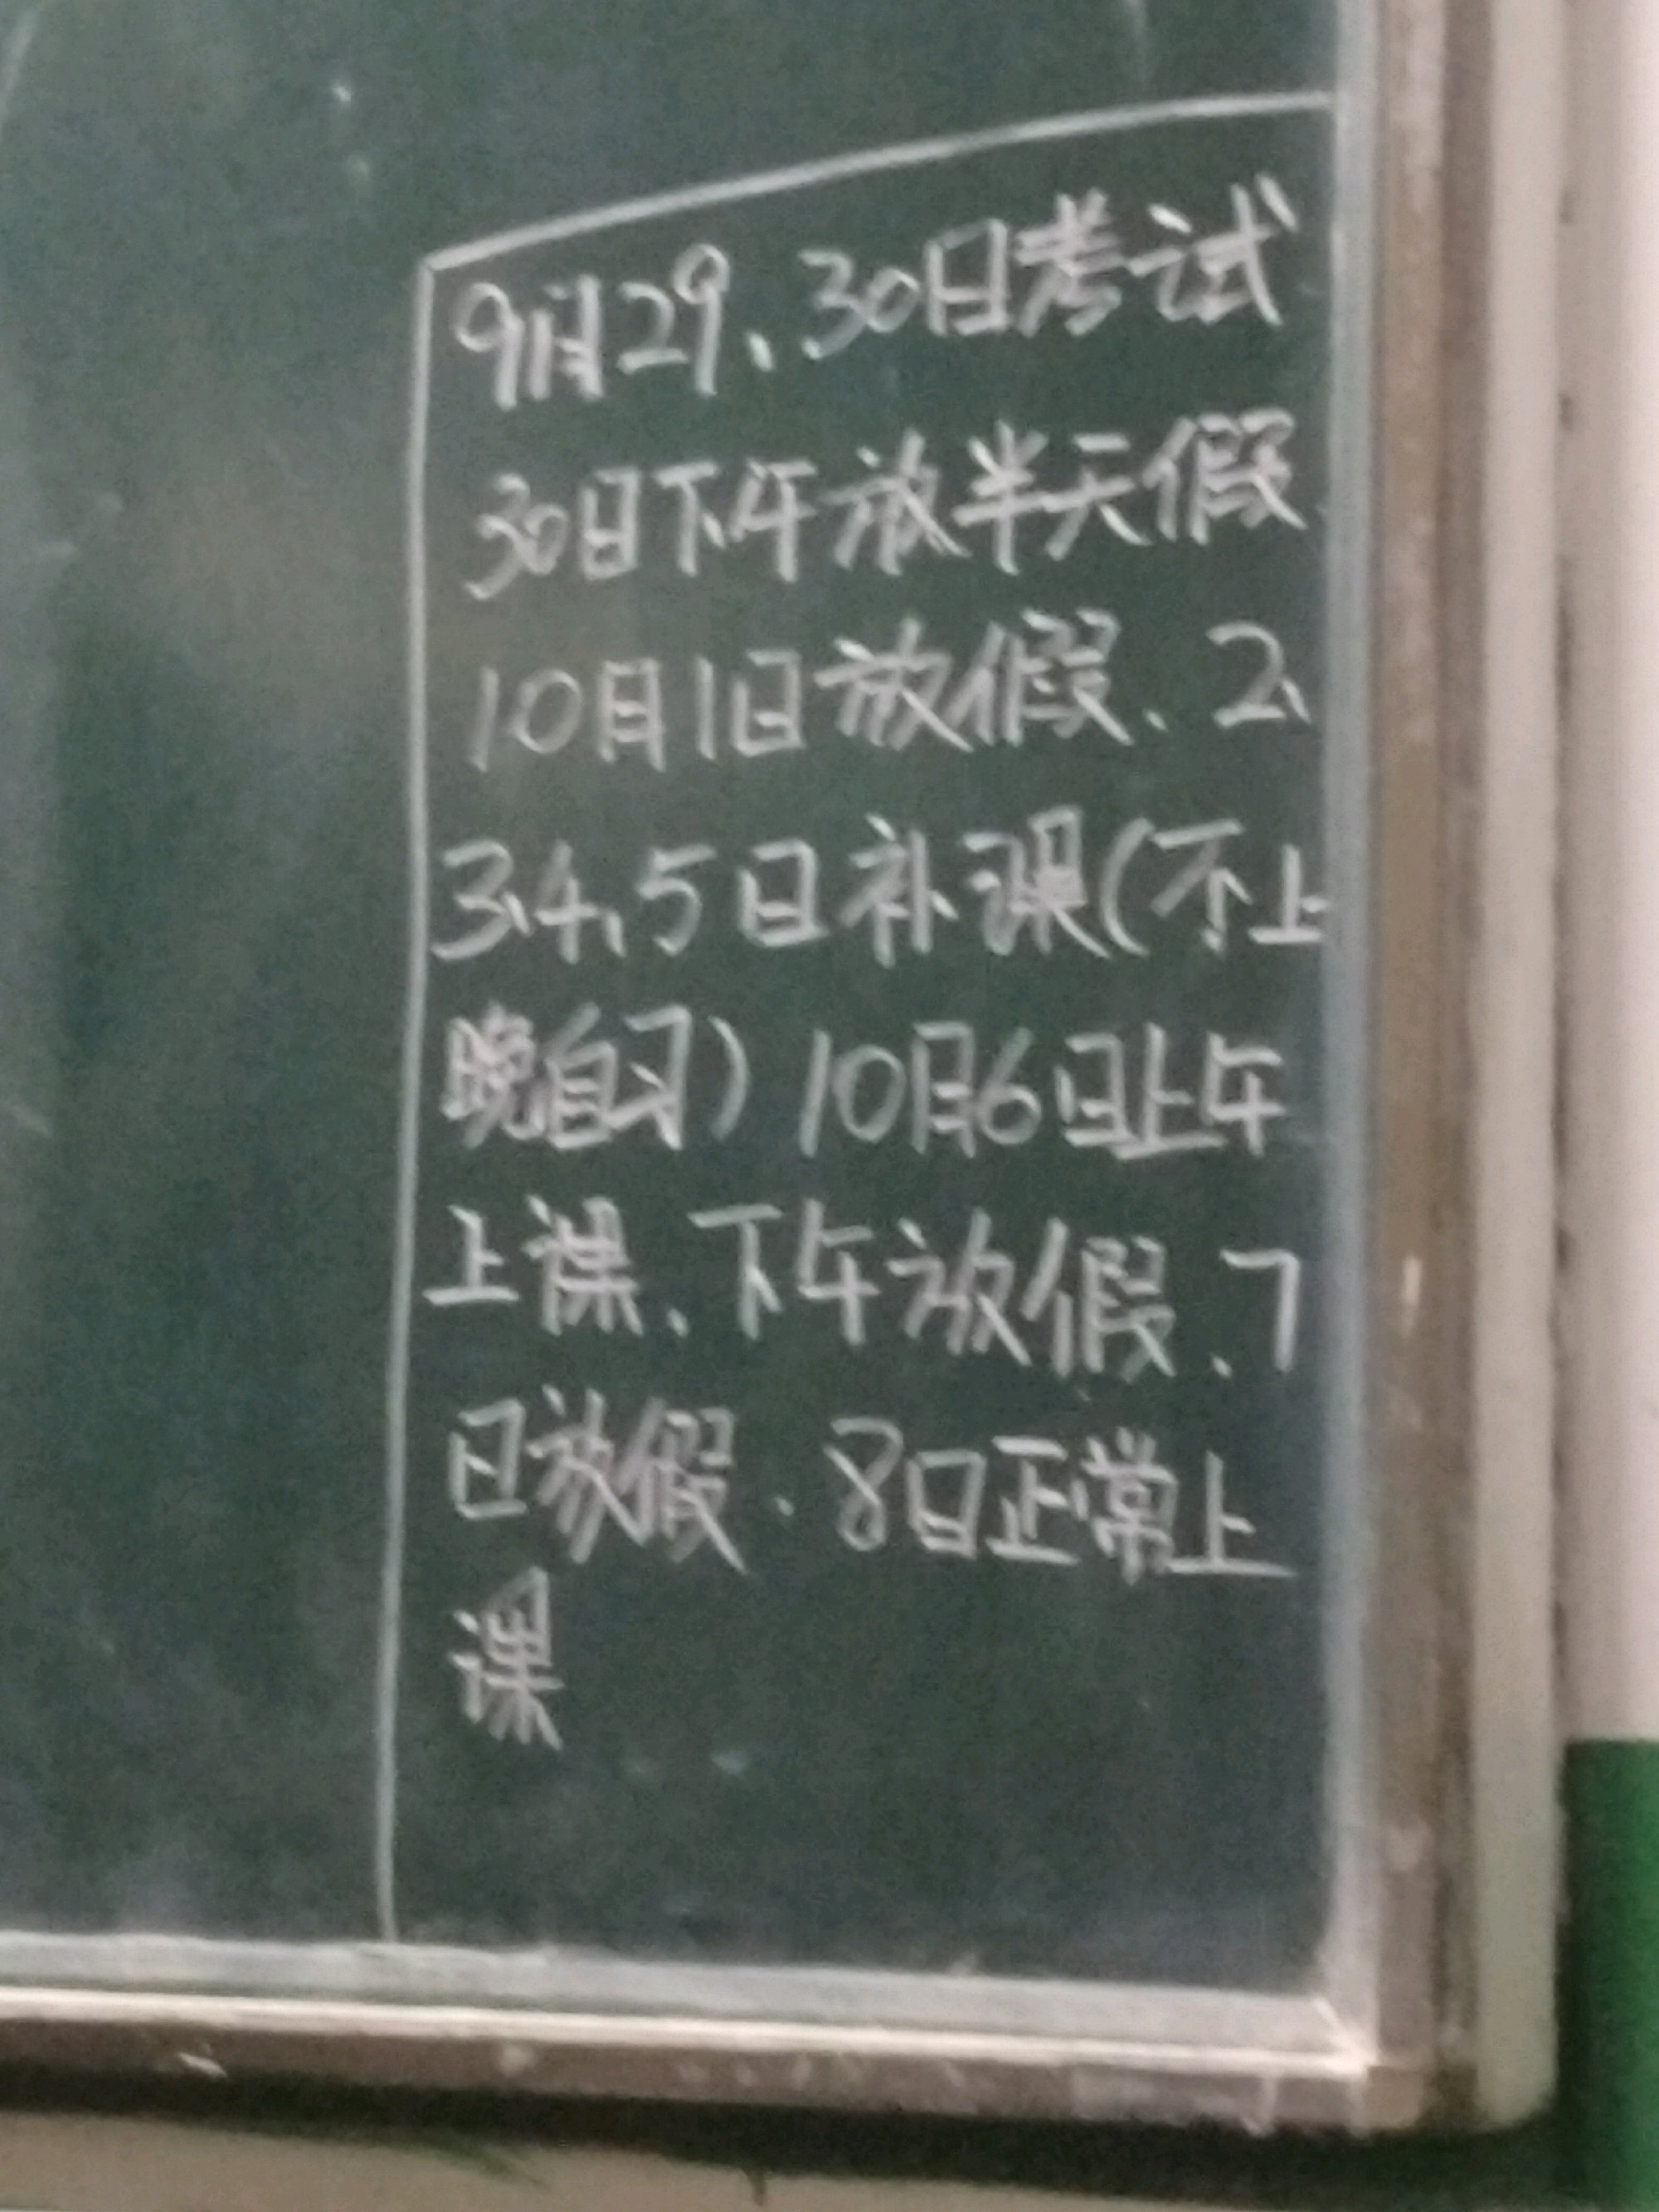 9月29、30日考试
30日下午放半天假
10月1日放假、2、
3、4、5日补课(不上
晚自习) 10月6日上午
上课、下午放假、7
日放假、8日正常上
课